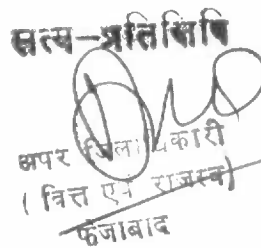 सत्य-प्रतिलिपि
अपर जिलाधिकारी
( वित्त एवं राजस्व)
फैजाबाद